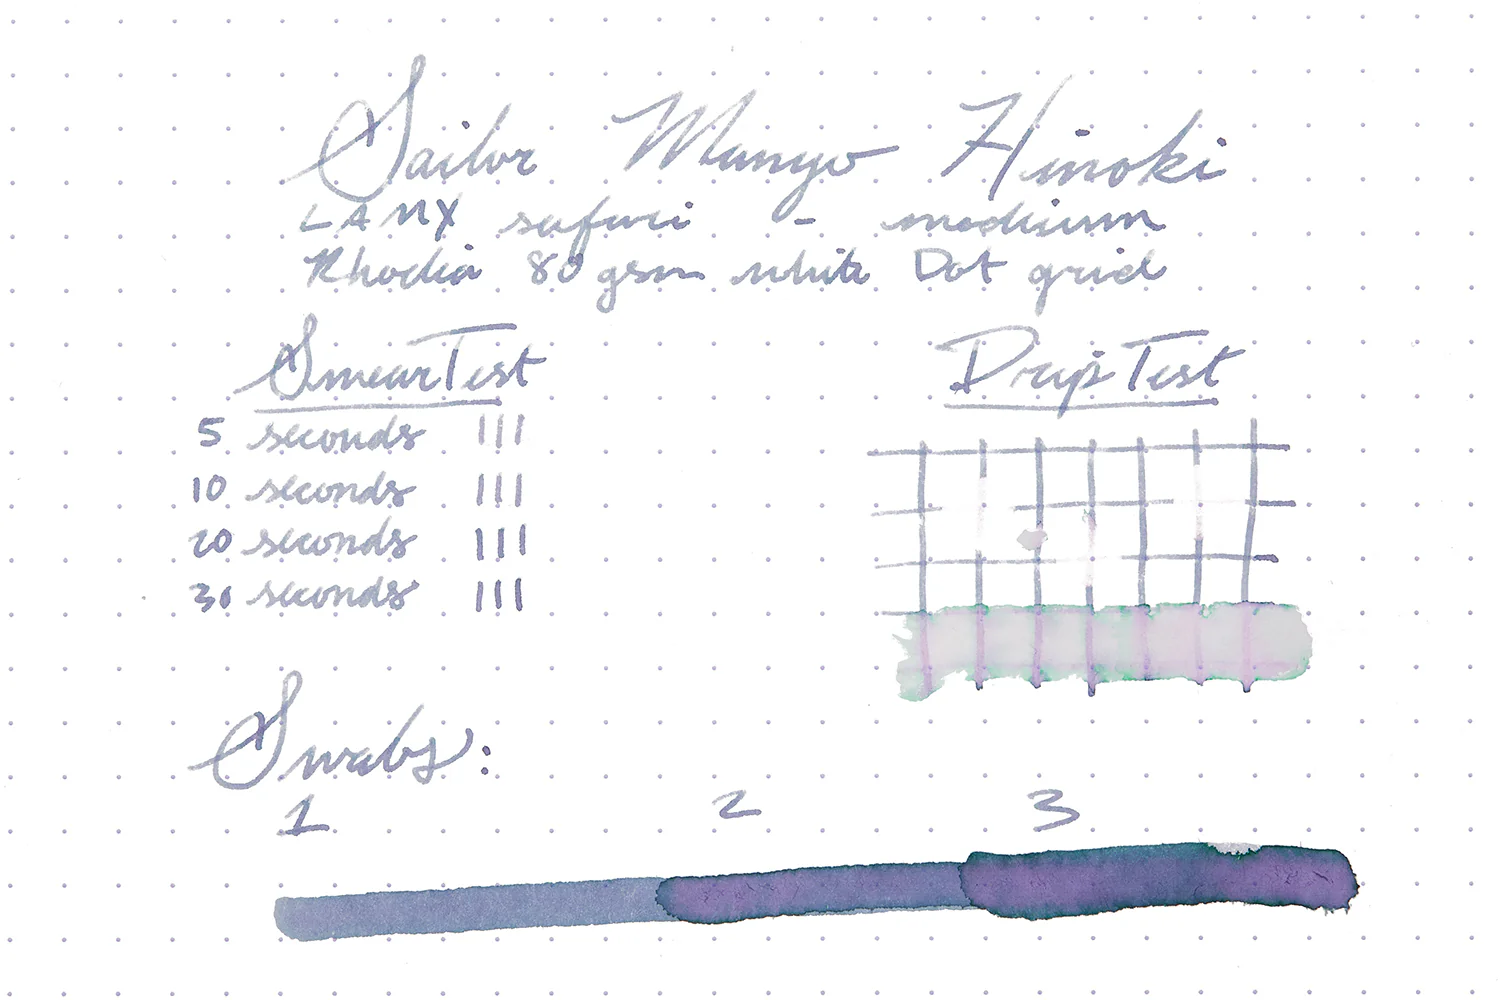 Sailor Manyo Hinoki
LAMY safari - medium
Rhodia 80 gsm white Dot grid
Smear Test
5 seconds III
10 seconds III
20 seconds III
30 seconds III
Drip Test
Swabs:
1 2 3